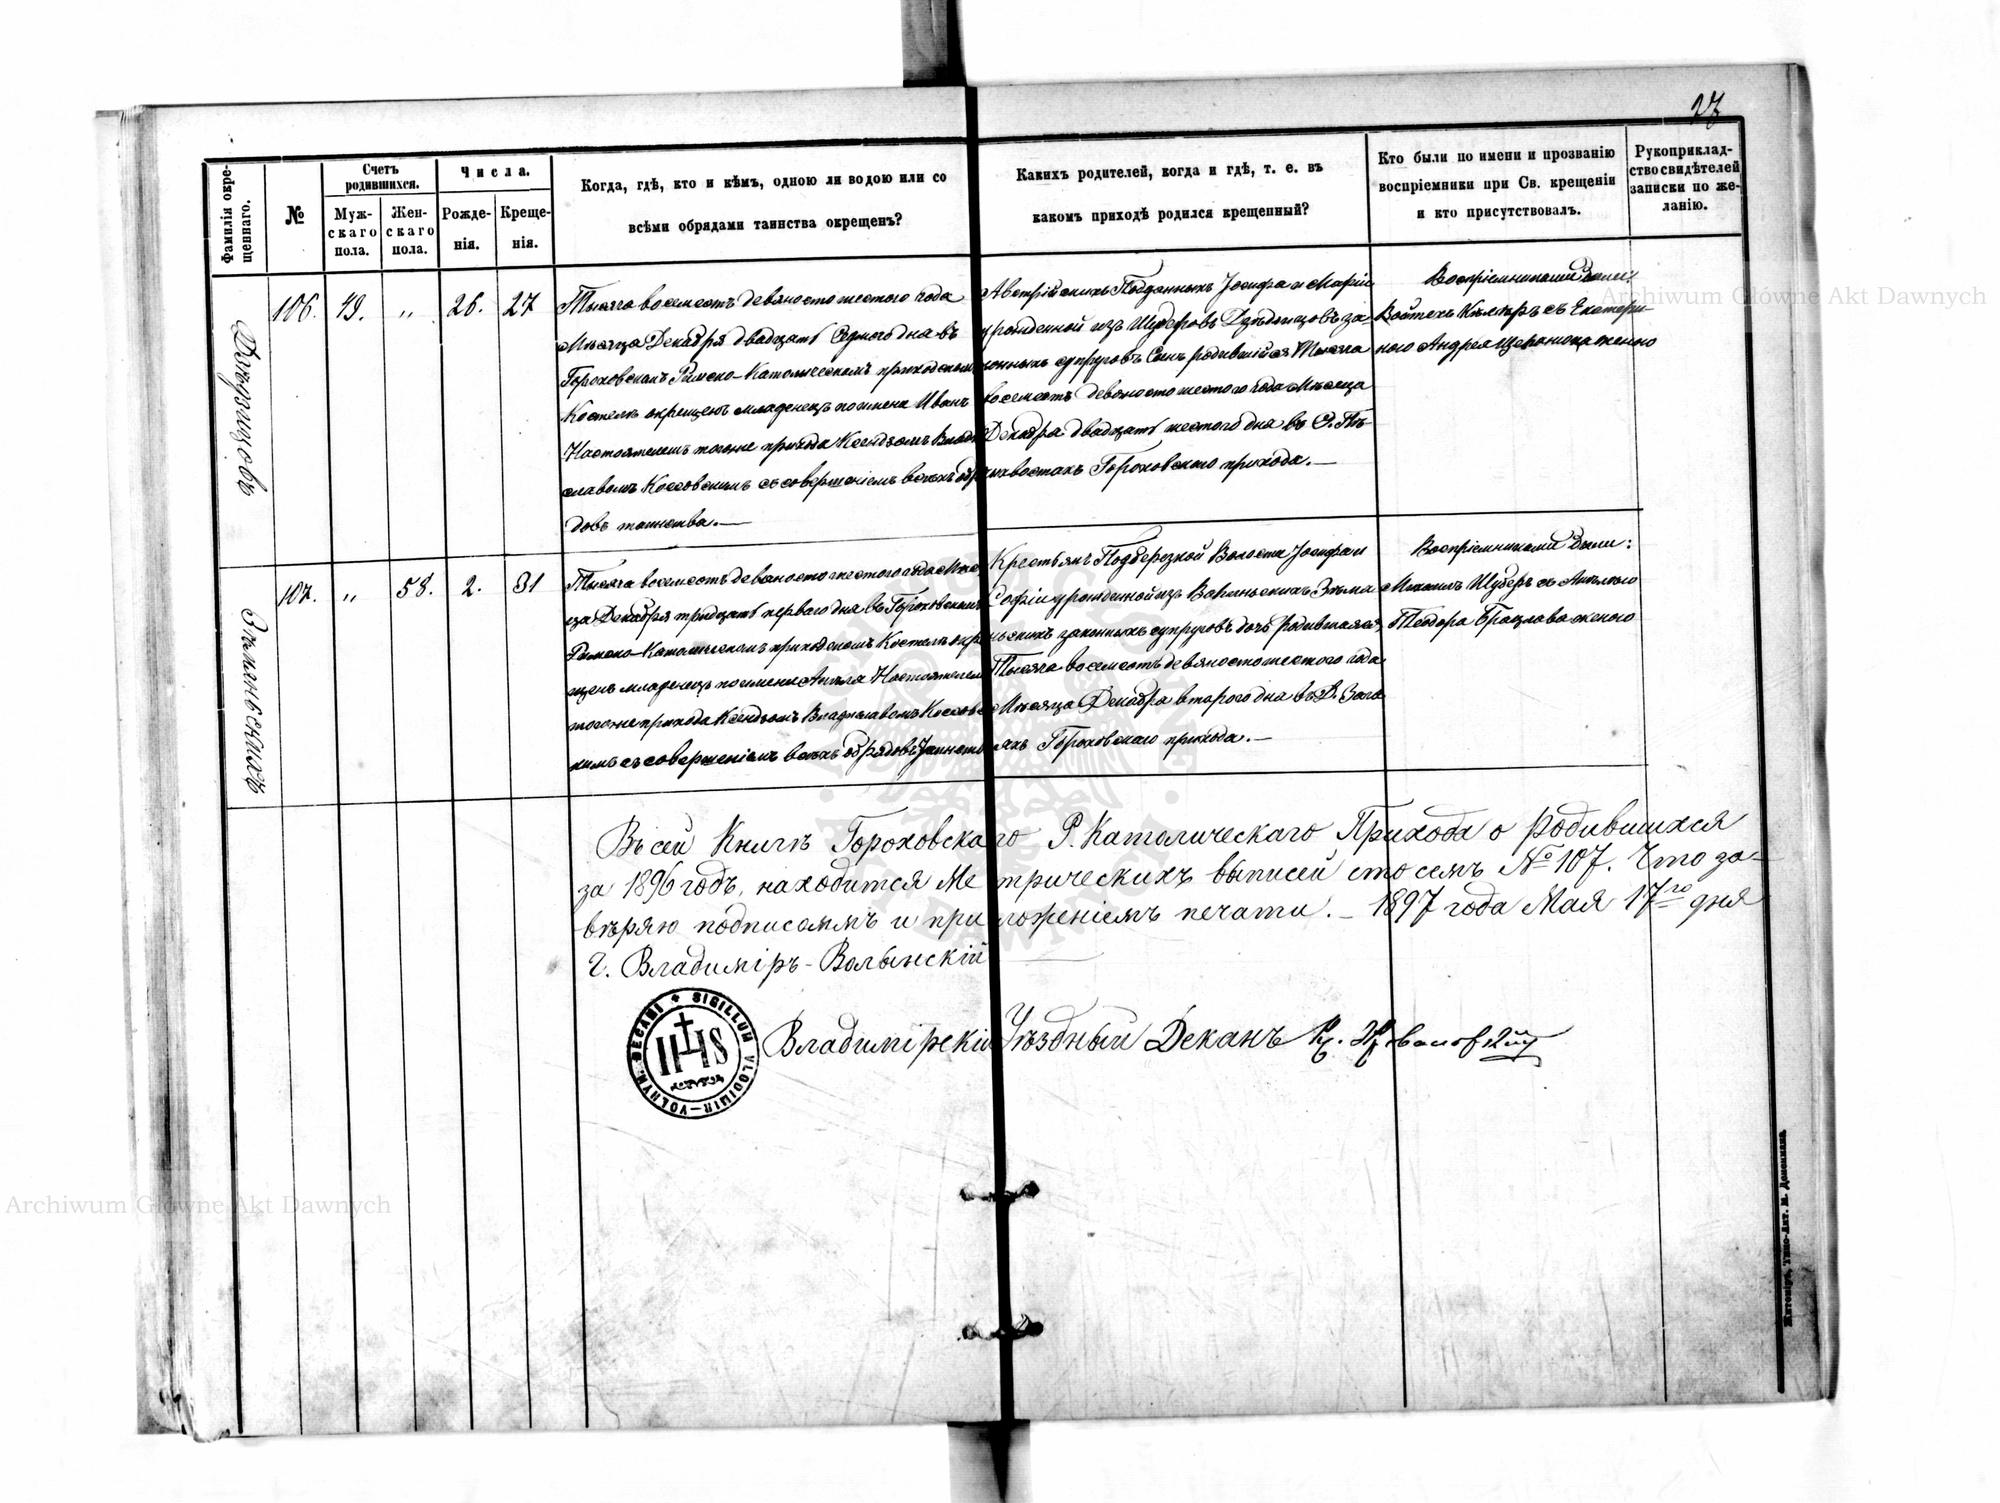 27
Фамилія окре-
щеннаго.
№
Счетъ
родившихся.
Муж-
скаго
пола.
Жен-
скаго
пола.
Числа.
Рожде-
нія.
Креще-
нія.
Когда, гдѣ, кто и кѣмъ, одною ли водою или со
всѣми обрядами таинства окрещенъ?
Какихъ родителей, когда и гдѣ, т. е. въ
какомъ приходѣ родился крещенный?
Кто были по имени и прозванію
воспріемники при Св. крещеніи
и кто присутствовалъ.
Рукоприклад-
ство свидѣтелей
записки по же-
ланію.
106. 49. „ 26. 27
Тысяча восемсотъ девяносто шестого года
Мѣсяца Декабря двадцать седмого дня въ
Гороховскомъ Римско-Католическомъ приходскомъ
Костелѣ окрещенъ младенецъ по имени Иванъ
Настоятелемъ тогоже прихода Ксендзомъ Влади-
славомъ Коссовскимъ съ совершеніемъ всѣхъ обря-
довъ таинства.—
Австрійскихъ Подданныхъ Іосифа и Маріи
урожденной изъ Шуберовъ Дзѣдзицовъ за-
конныхъ супруговъ Сынъ родившійся Тысяча
восемсотъ девяносто шестого года Мѣсяца
Декабря двадцать шестого дня въ
Гороховского прихода.—
Воспріемниками были:
Войтехъ съ Екатери-
ною Андрея женою
107. „ 58. 2. 31
Тысяча восемсотъ девяносто шестого года Мѣся-
ца Декабря тридцать перваго дня въ Гороховскомъ
Римско-Католическомъ приходскомъ Костелѣ окре-
щенъ младенецъ по имени Анѣля Настоятелемъ
тогоже прихода Ксендзомъ Владиславомъ Коссовс-
кимъ съ совершеніемъ всѣхъ обрядовъ Таинства
Крестьянъ Подберезкой Волости Іосифа и
Софіи урожденной изъ
законныхъ супруговъ дочь родившаяся
Тысяча восемсотъ девяносто шестого года
Мѣсяца Декабря второго дня въ
Гороховскаго прихода.—
Воспріемниками были:
Михаилъ Шуберъ съ Анѣлею
Теодора Брацлава женою
Въ сей Книгѣ Гороховскаго Р. Католическаго Прихода о родившихся
за 1896 годъ, находится Метрическихъ выписей сто семь № 107. Что за-
вѣряю подписомъ и приложеніемъ печати. – 1897 года Мая 17го дня
г. Владиміръ-Волынскій
Владимірскій Уѣздный Деканъ
SIGILLUM VLODIMIR-VOLHYN. DECANI
IHS
Житоміръ, Типо-Лит. М. Дененмана.
Archiwum Główne Akt Dawnych
Archiwum Główne Akt Dawnych